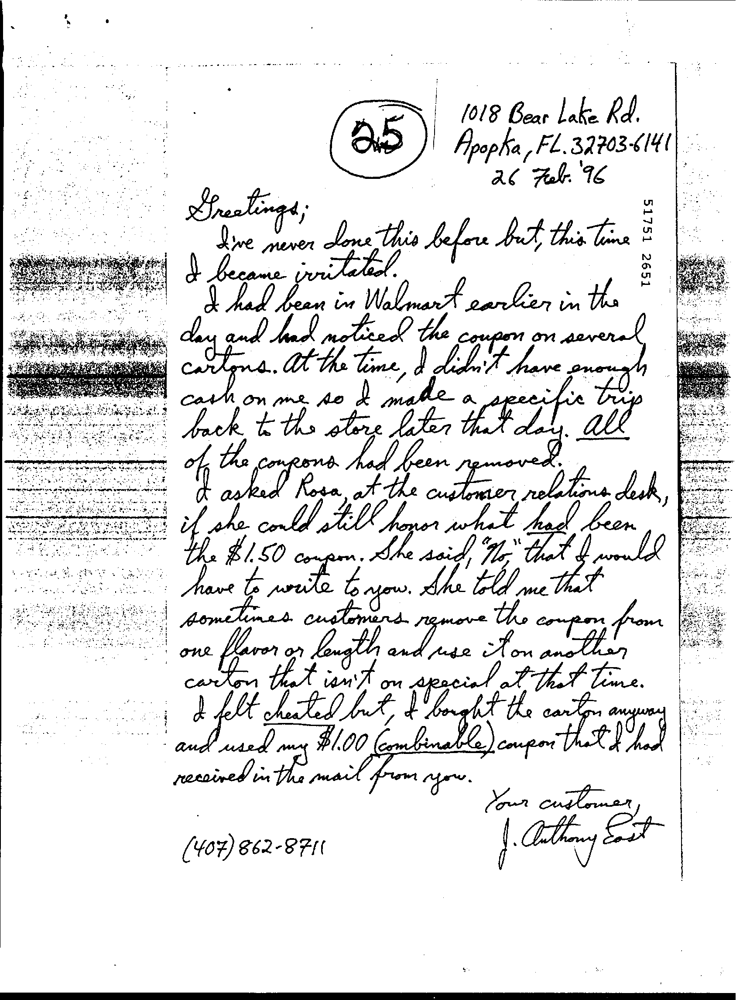 25
1018 Bear Lake Rd.
Apopka, FL. 32703-6141
26 Feb. '96
51751 2651
Greetings;
I've never done this before but, this time
I became irritated.
I had been in Walmart earlier in the
day and had noticed the coupon on several
cartons. At the time, I didn't have enough
cash on me so I made a specific trip
back to the store later that day. All
of the coupons had been removed.
I asked Rosa, at the customer relations desk,
if she could still honor what had been
the $1.50 coupon. She said, "No," that I would
have to write to you. She told me that
sometimes customers remove the coupon from
one flavor or length and use it on another
carton that isn't on special at that time.
I felt cheated but, I bought the carton anyway
and used my $1.00 (combinable) coupon that I had
received in the mail from you.
Your customer,
J. Anthony East
(407) 862-8711